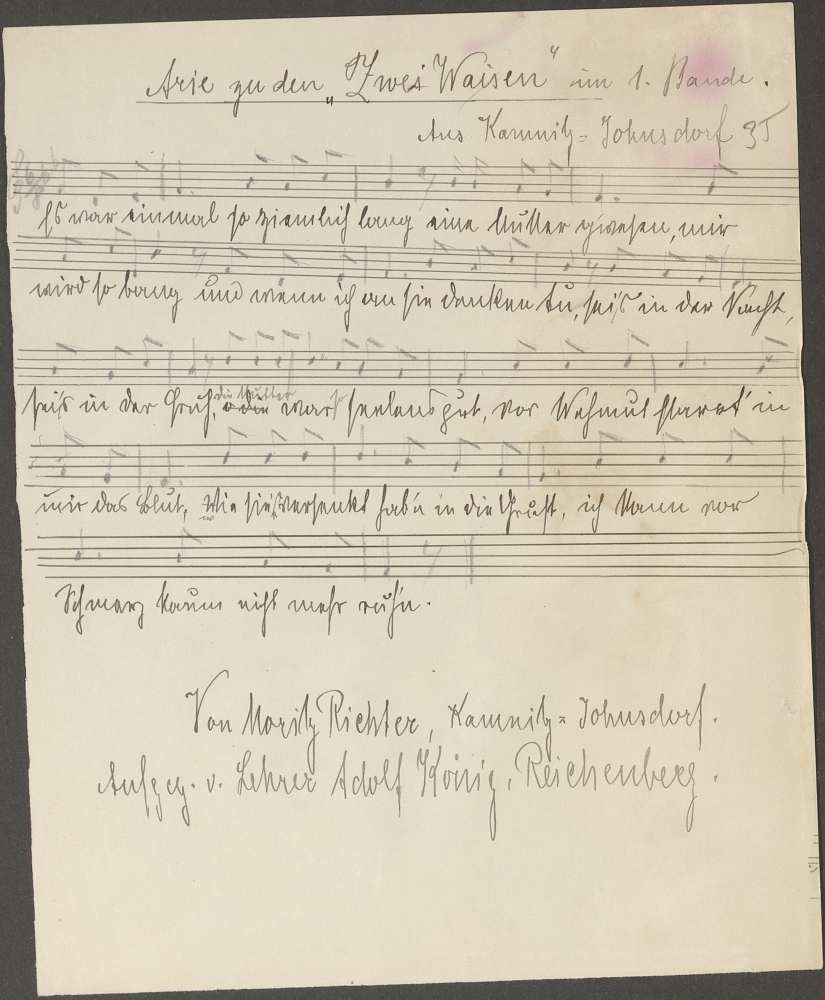 Arie zu den „Zwei Waisen“ im 1. Bande.
Aus Kamnitz-Johnsdorf 35
Es war einmal so ziemlich lang eine Mutter gwesen, mir
wird so bang und wenn ich an sie denken tu, sei's in der Nacht,
sei's in der Fruh,
die Mutter
war so seelensgut, vor Wehmut starrt' in
mir das Blut, Wie sie's versenkt hab'n in die Gruft, ich kann vor
Schmerz kaum nicht mehr ruh'n.
Von Moritz Richter, Kamnitz-Johnsdorf.
Aufgez. v. Lehrer Adolf König, Reichenberg.